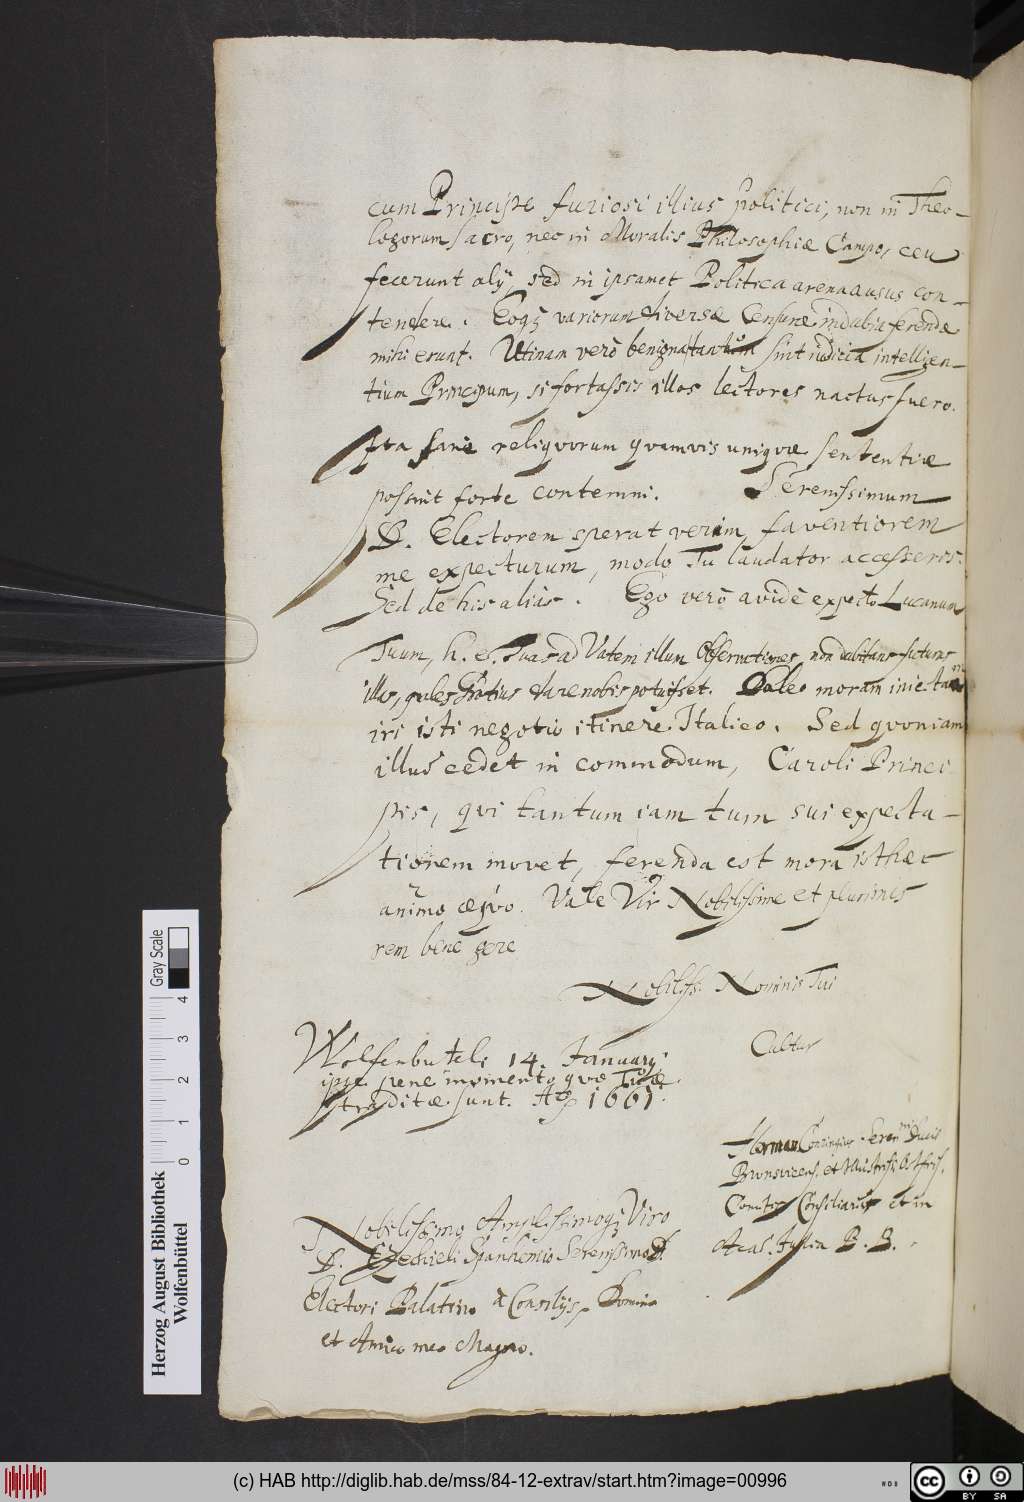 cum Principe furiosi illius politici, non in Theo-
logorum sacro, nec in Moralis Philosophiæ Campo, ceu
fecerunt alij, sed in ipsamet Politica arena ausus con-
tendere. Eoq; variorum diversæ Censuræ indubia ferendæ
mihi erunt. Utinam verò benigna tantum sint iudicia intelligen-
tium Principum, si fortassis illos lectores nactus fuero.
Ita sane reliquorum quamvis iniquæ sententiæ
possint forte contemni. Serenissimum
D. Electorem sperat verim faventiorem
me experturum, modo Tu laudator accesseris.
Sed de his alias. Ego verò avidè expecto Lucanum
Tuum, h. e. Tuas ad Vatem illum Observationes, non dubitans futuras
illas, quales Grotius dare nobis potuisset. Doleo moram iniectam
iri isti negotio itinere Italico. Sed quoniam
illud cedet in commodum, Caroli Princi-
pis, qui tantum iam tum sui expecta-
tionem movet, ferenda est mora isthæc
animo æquo. Vale Vir Nobilissime et plurimis
rem bene gere
Nobiliss. Nominis Tui
Cultor
Wolfenbuteli 14. Januarij
ipso pene momento quo Tuæ
traditæ sunt. Aº 1661.
Herman Conringius Seren.mi Ducis
Brunsvicens. et Illustriss. Ostfris.
Comitis Consiliarius et in
Acad. Julia P. P.
Nobilissimo Amplissimoq; Viro
D. Ezechieli Spanhemio Serenissimo D.
Electori Palatino à Consilijs, Domino
et Amico meo Magno.
Herzog August Bibliothek
Wolfenbüttel
0 1 2 3 4
Gray Scale
(c) HAB http://diglib.hab.de/mss/84-12-extrav/start.htm?image=00996
WDB
cc BY SA